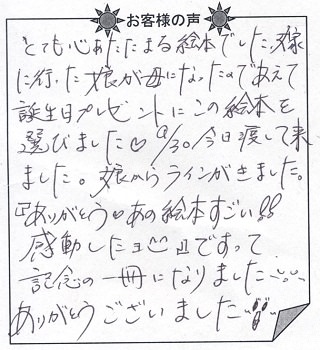 お客様の声
とても心あたたまる絵本でした。嫁
に行った娘が母になったのであえて
誕生日プレゼントにこの絵本を
選びました♡ 9/30今日渡して来
ました。娘からラインがきました。
『ありがとう♡あの絵本すごい!!
感動したヨ』ですって
記念の一冊になりました
ありがとうございました